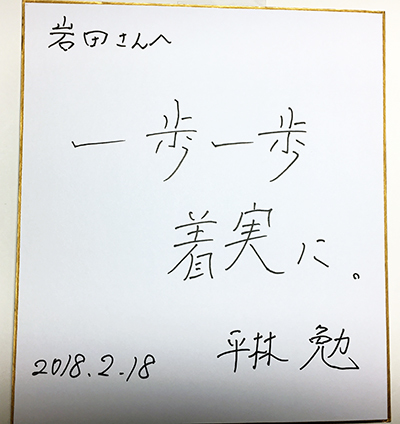 岩田さんへ
一歩一歩
着実に。
2018.2.18 平林 勉